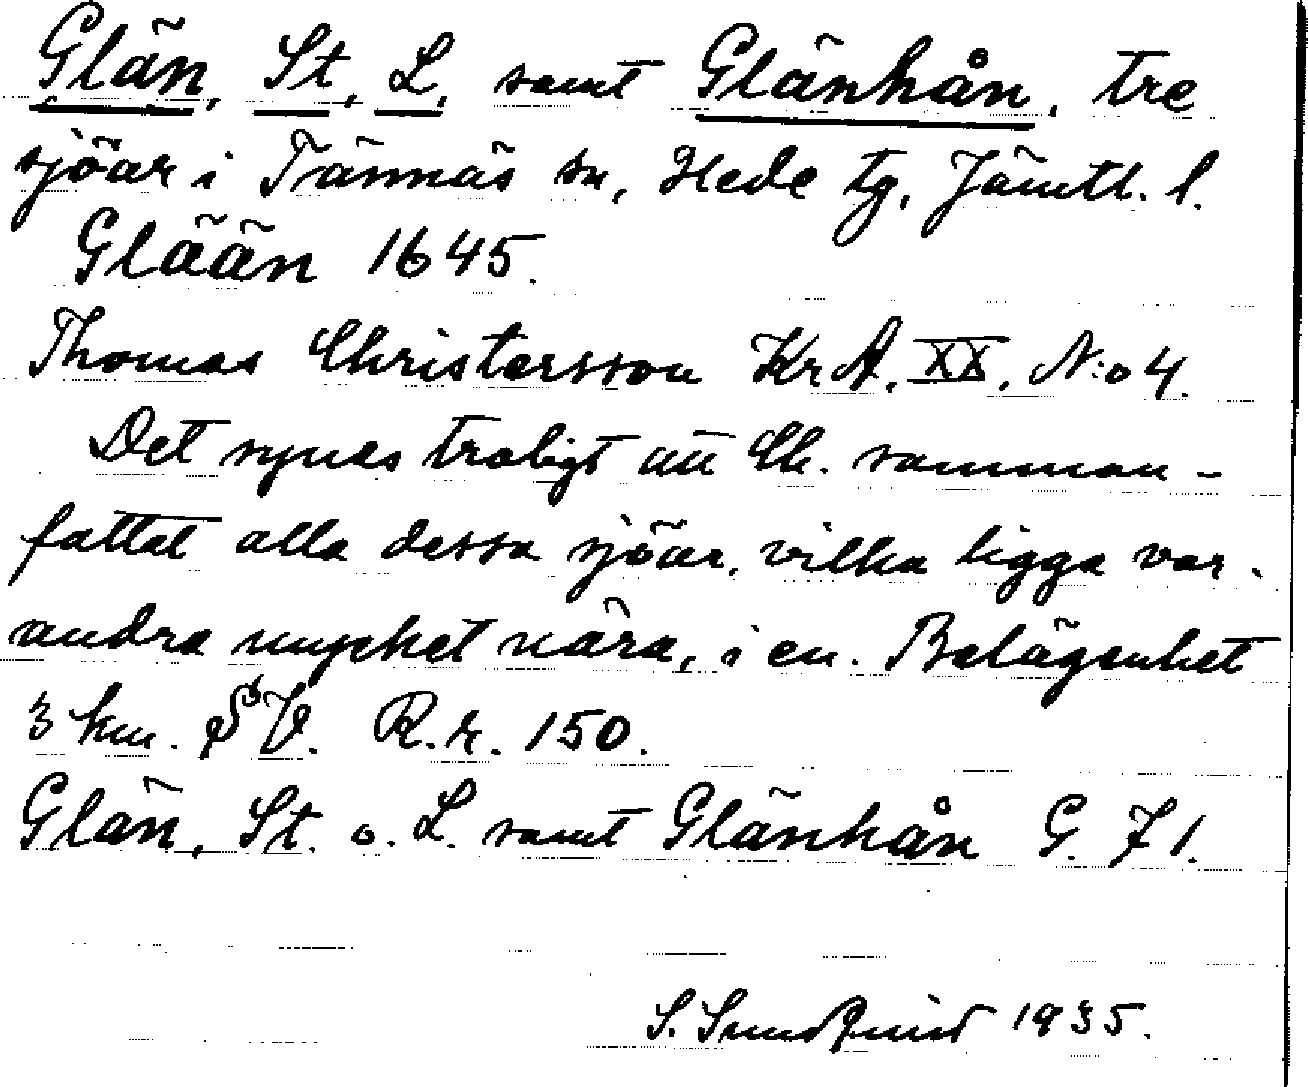 Glän, St, L, samt Glänhån, tre
sjöar i Tännäs sn, Hede tg, Jämtl. l.
Glään 1645.
Thomas Christersson KrA. XX, N:o 4.
Det synes troligt att Ch. samman-
fattat alla dessa sjöar, vilka ligga var-
andra mycket nära, i en. Belägenhet
3 km. SV. R.r. 150.
Glän, St. o. L. samt Glänhån G. 71.
S. Sundquist 1935.